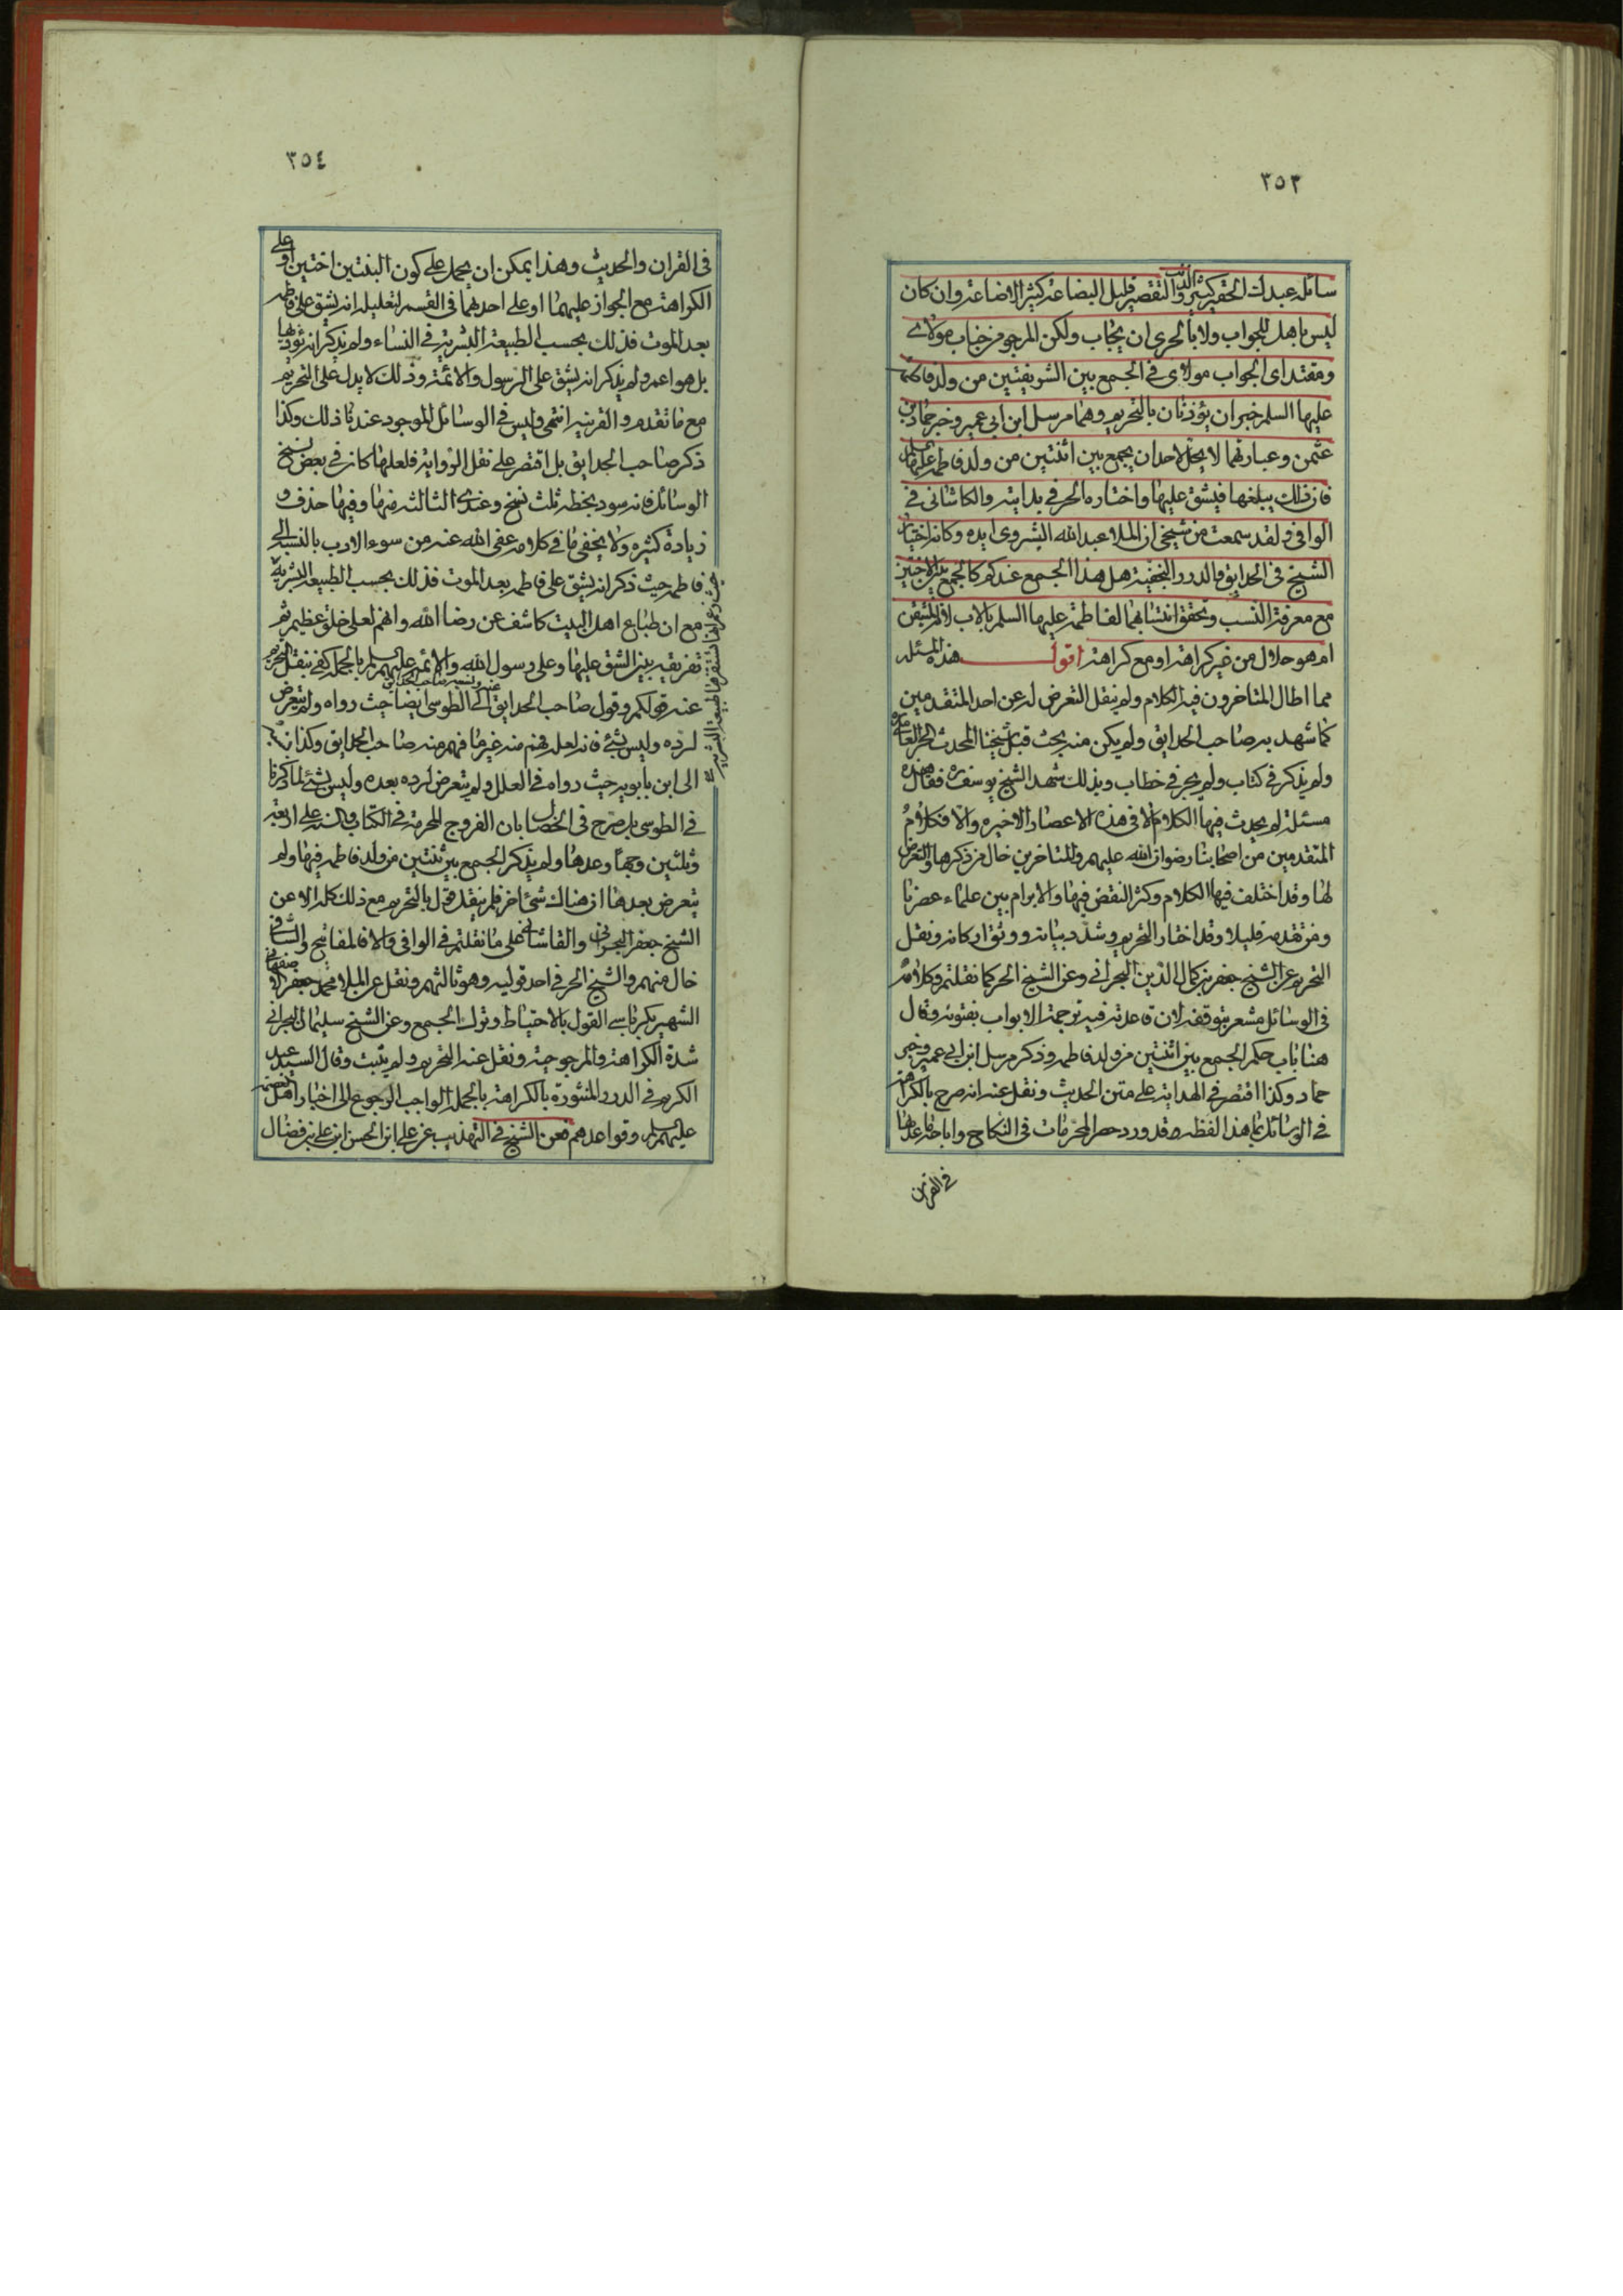 ٣٥٣
سائله عبدك الحقير كثير الذنب والتقصير قليل البضاعة كثير الاضاعة وان كان
ليس باهل للجواب ولا بالحرى ان يجاب ولكن المرجو من جناب مولاى
ومقتداى الجواب مولاى فى الجمع بين الشريفتين من ولد فاطمة
عليها السلم خبران يؤذنان بالتحريم وهما مرسل ابن ابى عمير وخبر حماد بن
عثمن وعبارتهما لا يحل لاحد ان يجمع بين اثنتين من ولد فاطمة عليها السلم
فان ذلك يبلغها فيشق عليها واختاره الحر فى بدايته والكاشانى فى
الوافى ولقد سمعت من شيخى ان الملا عبد الله اليشروى ايده وكانه اختيار
الشيخ فى الحدايق والدرر النجفية هل هذا الجمع عندكم كالجمع بين الاختين
مع معرفة النسب وتحقق انتسابهما لفاطمة عليها السلم بالاب لانه المتيقن
ام هو حلال من غير كراهة او مع كراهة اقول هذه المسئله
مما اطال المتاخرون فيه الكلام ولم ينقل التعرض له عن احد المتقدمين
كما شهد به صاحب الحدايق ولم يكن منه بحث قبل شيخنا المحدث الحر العاملى
ولم يذكر فى كتاب ولم يجر فى خطاب وبذلك شهد الشيخ يوسف ره فقال هذه
مسئلة لم يحدث فيها الكلام الا فى هذه الاعصار الاخيره والا فكلام
المتقدمين من اصحابنا رضوان الله عليهم والمتاخرين خال من ذكرها والتعرض
لها وقد اختلف فيها الكلام وكثر النقض فيها والابرام بين علماء عصرنا
ومن تقدمه قليلا وقد اختار التحريم وشد بنيانه ووثق اركانه ونقل
التحريم عن الشيخ جعفر بن كمال الدين البحرانى وعن الشيخ الحر كما نقلتم وكلامه
فى الوسائل مشعر بتوقفه لان قاعدته فيه ترجمة الابواب بفتوئه وقال
هنا باب حكم الجمع بين اثنتين من ولد فاطمه وذكر مرسل ابن ابى عمير وخبر
حماد وكذا اقتصر فى الهداية على متن الحديث ونقل عنه انه صرح بالكراهة
فى الوسائل بما هذا لفظه قد ورد حصر المحرمات فى النكاح واباحة ما عداها
فى القران
٣٥٤
فى القران والحديث وهذا يمكن ان يحمل على كون البنتين اختين او على
الكراهة مع الجواز عليهما او على احدهما فى القسم لتعليله انه يشق على فاطمه
بعد الموت فذلك بحسب الطبيعة البشرية فى النساء ولم يذكر انه يؤذيها
بل هو اعم ولم يذكر انه يشق على الرسول والائمة وذلك لا يدل على التحريم
مع ما تقدم والقرينه انتهى وليس فى الوسائل الموجود عندنا ذلك وكذا
ذكر صاحب الحدايق بل اقتصر على نقل الرواية فلعلها كانت فى بعض نسخ
الوسائل فانه سود بخطه ثلث نسخ وعندى الثالثه منها وفيها حذف و
زيادة كثيره ولا يخفى ما فى كلامه عفى الله عنه من سوء الادب بالنسبة الى
فاطمه حيث ذكر انه يشق على فاطمه بعد الموت فذلك بحسب الطبيعة البشرية
مع ان طباع اهل البيت كاشف عن رضا الله وانهم لعلى خلق عظيم ثم
تفريقه بين الشق عليها وعلى رسول الله والائمه عليهم السلم بالجملة كفى بنقل التحريم
عنه قولكم وقول صاحب الحدايق الى الطوسى ايضا حيث رواه ولم يتعرض
لرده وليس بشئ فانه لعله فهم منه غير ما فهم منه صاحب الحدايق وكذا نسبته
الى ابن بابويه حيث رواه فى العلل ولم يتعرض لرده بعده وليس بشئ لما ذكرنا
فى الطوسى بل صرح فى الخصال بان الفروج المحرمة فى الكتاب والسنة على اربعة
وثلثين وجها وعدها ولم يذكر الجمع بين ثنتين من ولد فاطمه فيها ولم
يتعرض بعدها ان هناك شئ اخر فلم ينقل قول بالتحريم مع ذلك كله الا عن
الشيخ جعفر البحرانى والقاسانى على ما نقلتم فى الوافى والا فالمفاتيح والشافى
خال منهم والشيخ الحر فى احد قوليه وهو ثالثهم ونقل عن الملا محمد جعفر الاصفهانى
الشهير بكرباسى القول بالاحتياط وترك الجمع وعن الشيخ سليمان البحرانى
شدة الكراهة والمرجوحية ونقل عنه التحريم ولم يثبت وقال السيد عبد
الكريم فى الدرر المنثورة بالكراهة بالجملة الواجب الرجوع الى اخبار اهل العصمة
عليهم السلم وقواعدهم فعن الشيخ فى التهذيب عن على ابن الحسن ابن على بن فضال